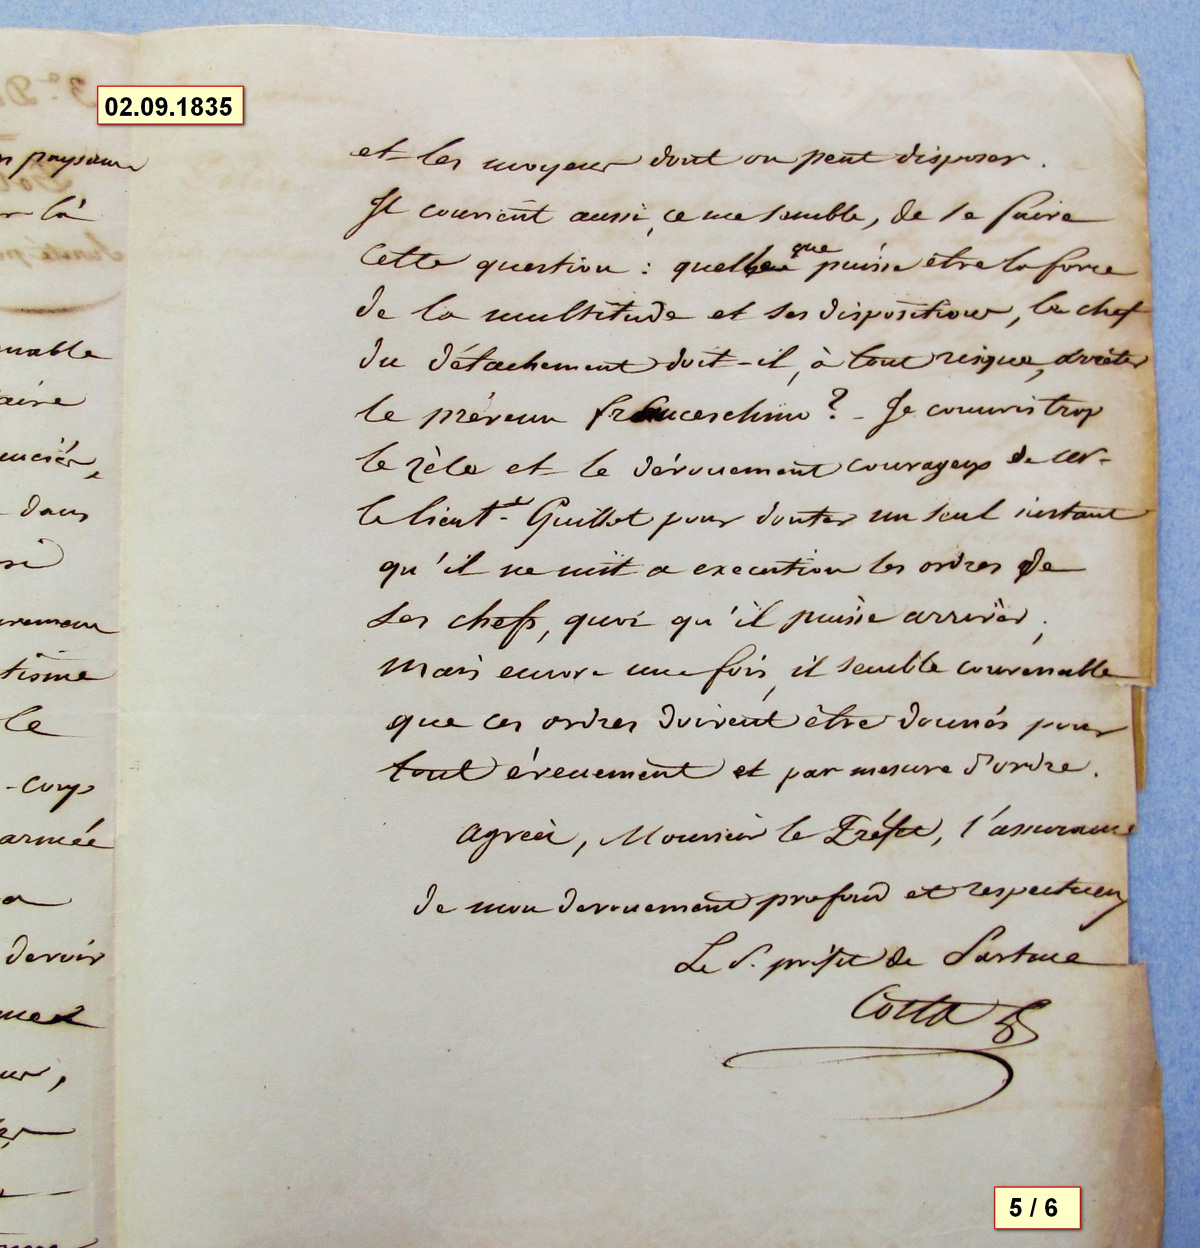 02.09.1835
paysans
là
et les moyens dont on peut disposer.
Il convient aussi, ce me semble, de se faire
Cette question : quelle que puisse être la force
de la multitude et ses dispositions, le chef
du détachement doit-il, à tout risque, arrêter
le prévenu franceschino ? - Je connais trop
le zèle et le dévouement courageux de
le lieut.t Guillot pour douter un seul instant
qu'il ne mit a execution les ordres de
ses chefs, quoi qu'il puisse arriver ;
mais encore une fois, il semble convenable
que ces ordres doivent être donnés pour
tout évenement et par mesure d'ordre.
agréer, Monsieur le Préfet, l'assurance
de mon devouement profond et respectueux
Le S. préfet de Sartene
Cotta
nable
aire
dans
tisme
le
-corps
armée
devoir
5 / 6